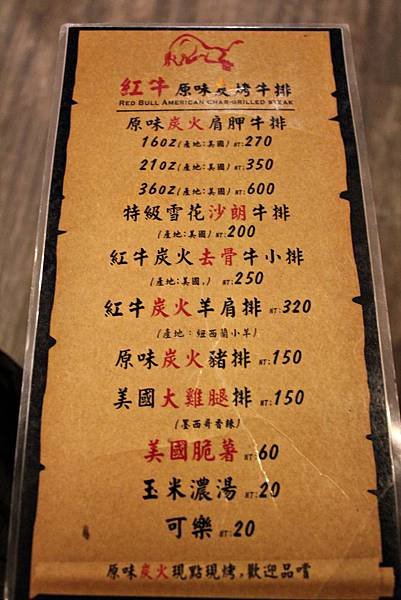 紅牛 原味炭烤牛排
RED BULL AMERICAN CHAR-GRILLED STEAK
原味炭火肩胛牛排
16oz(產地:美國) NT:270
21oz(產地:美國) NT:350
36oz(產地:美國) NT:600
特級雪花沙朗牛排
(產地:美國) NT:200
紅牛炭火去骨牛小排
(產地:美國,) NT:250
紅牛炭火羊肩排 NT:320
(產地:紐西蘭小羊)
原味炭火豬排 NT:150
美國大雞腿排 NT:150
(墨西哥香辣)
美國脆薯 NT:60
玉米濃湯 NT:20
可樂 NT:20
原味炭火現點現烤,歡迎品嚐